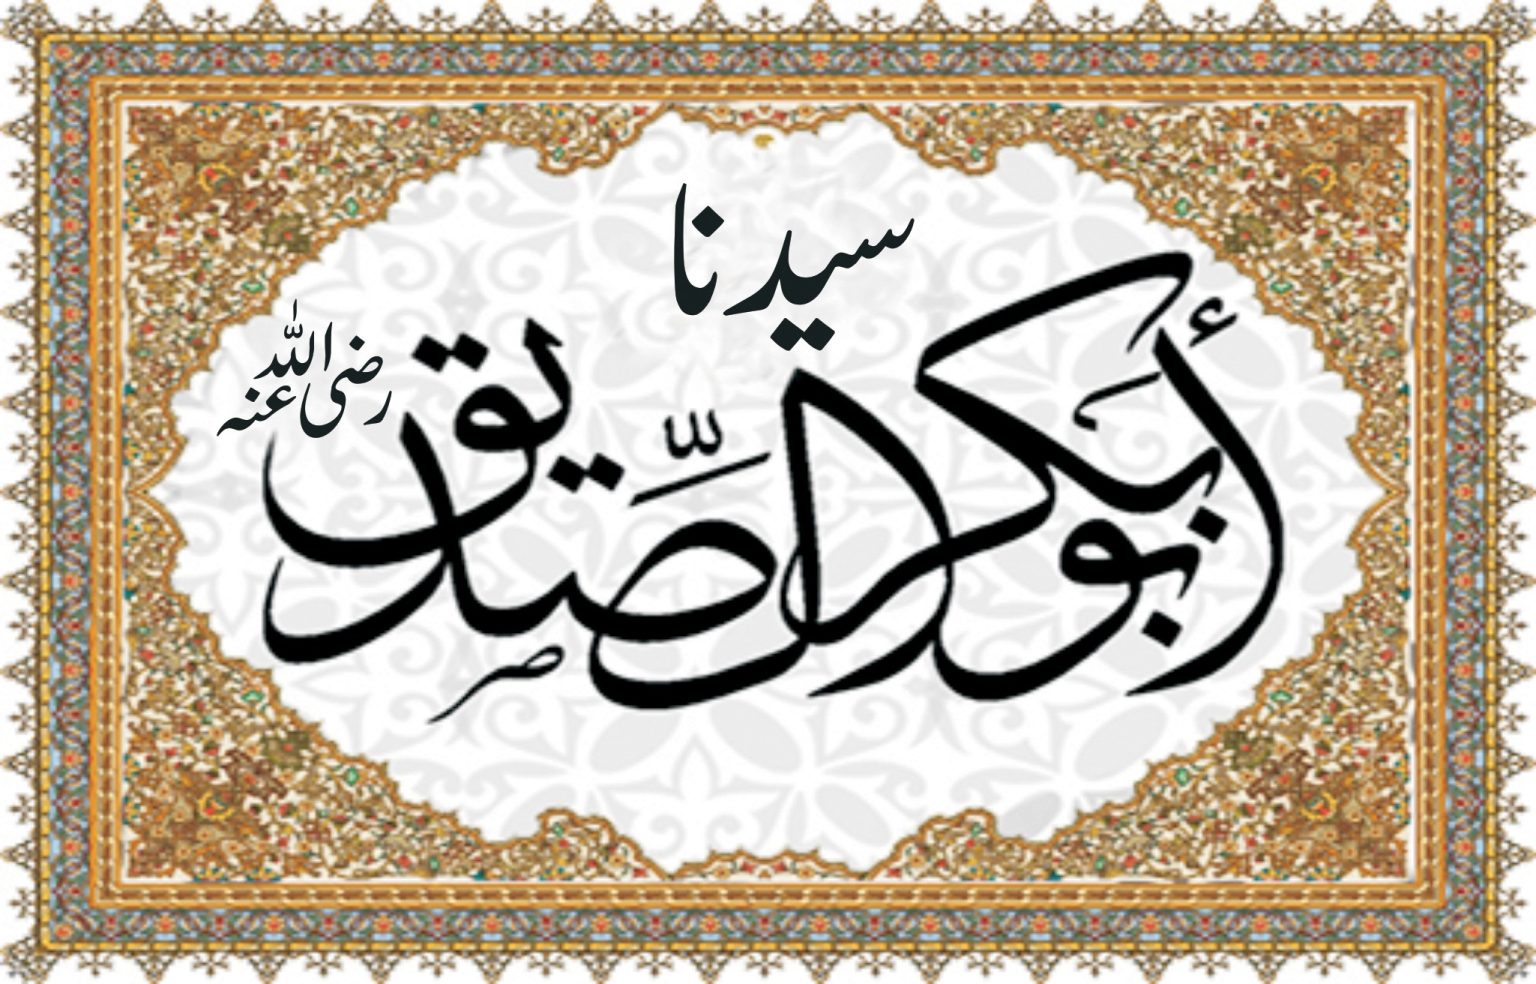 سیدنا
أبوبكر الصّديق
رضی اللہ عنہ